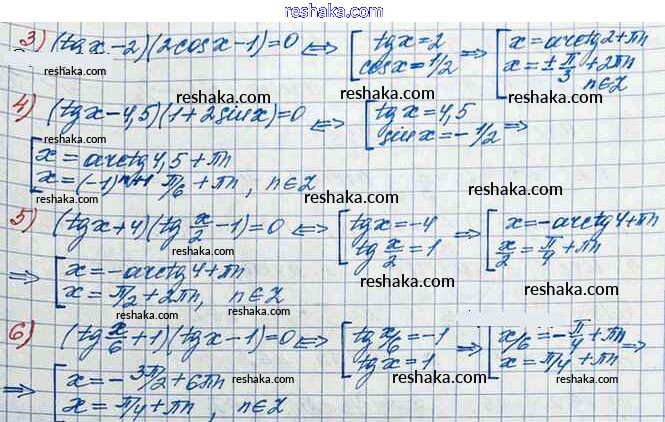 reshaka.com
3) (tgx-2)(2cosx-1)=0 ⇔ [ tgx=2 cosx=1/2 ⇒ [ x=arctg2+πn x=±π/3+2πn n∈Z
reshaka.com
reshaka.com
reshaka.com
4) (tgx-4,5)(1+2sinx)=0 ⇔ [ tgx=4,5 sinx=-1/2 ⇒
reshaka.com
[ x=arctg4,5+πn
x=(-1)ⁿ⁺¹ π/6+πn, n∈Z
reshaka.com
reshaka.com
5) (tgx+4)(tg x/2 -1)=0 ⇔ [ tgx=-4 tg x/2=1 ⇒ [ x=-arctg4+πn x/2=π/4+πn
reshaka.com
⇒ [ x=-arctg4+πn
x=π/2+2πn, n∈Z
reshaka.com
reshaka.com
reshaka.com
6) (tg x/6 +1)(tgx-1)=0 ⇔ [ tg x/6=-1 tgx=1 ⇒ [ x/6=-π/4+πn x=π/4+πn ⇒
reshaka.com
⇒ [ x=-3π/2+6πn
x=π/4+πn, n∈Z
reshaka.com
reshaka.com
reshaka.com